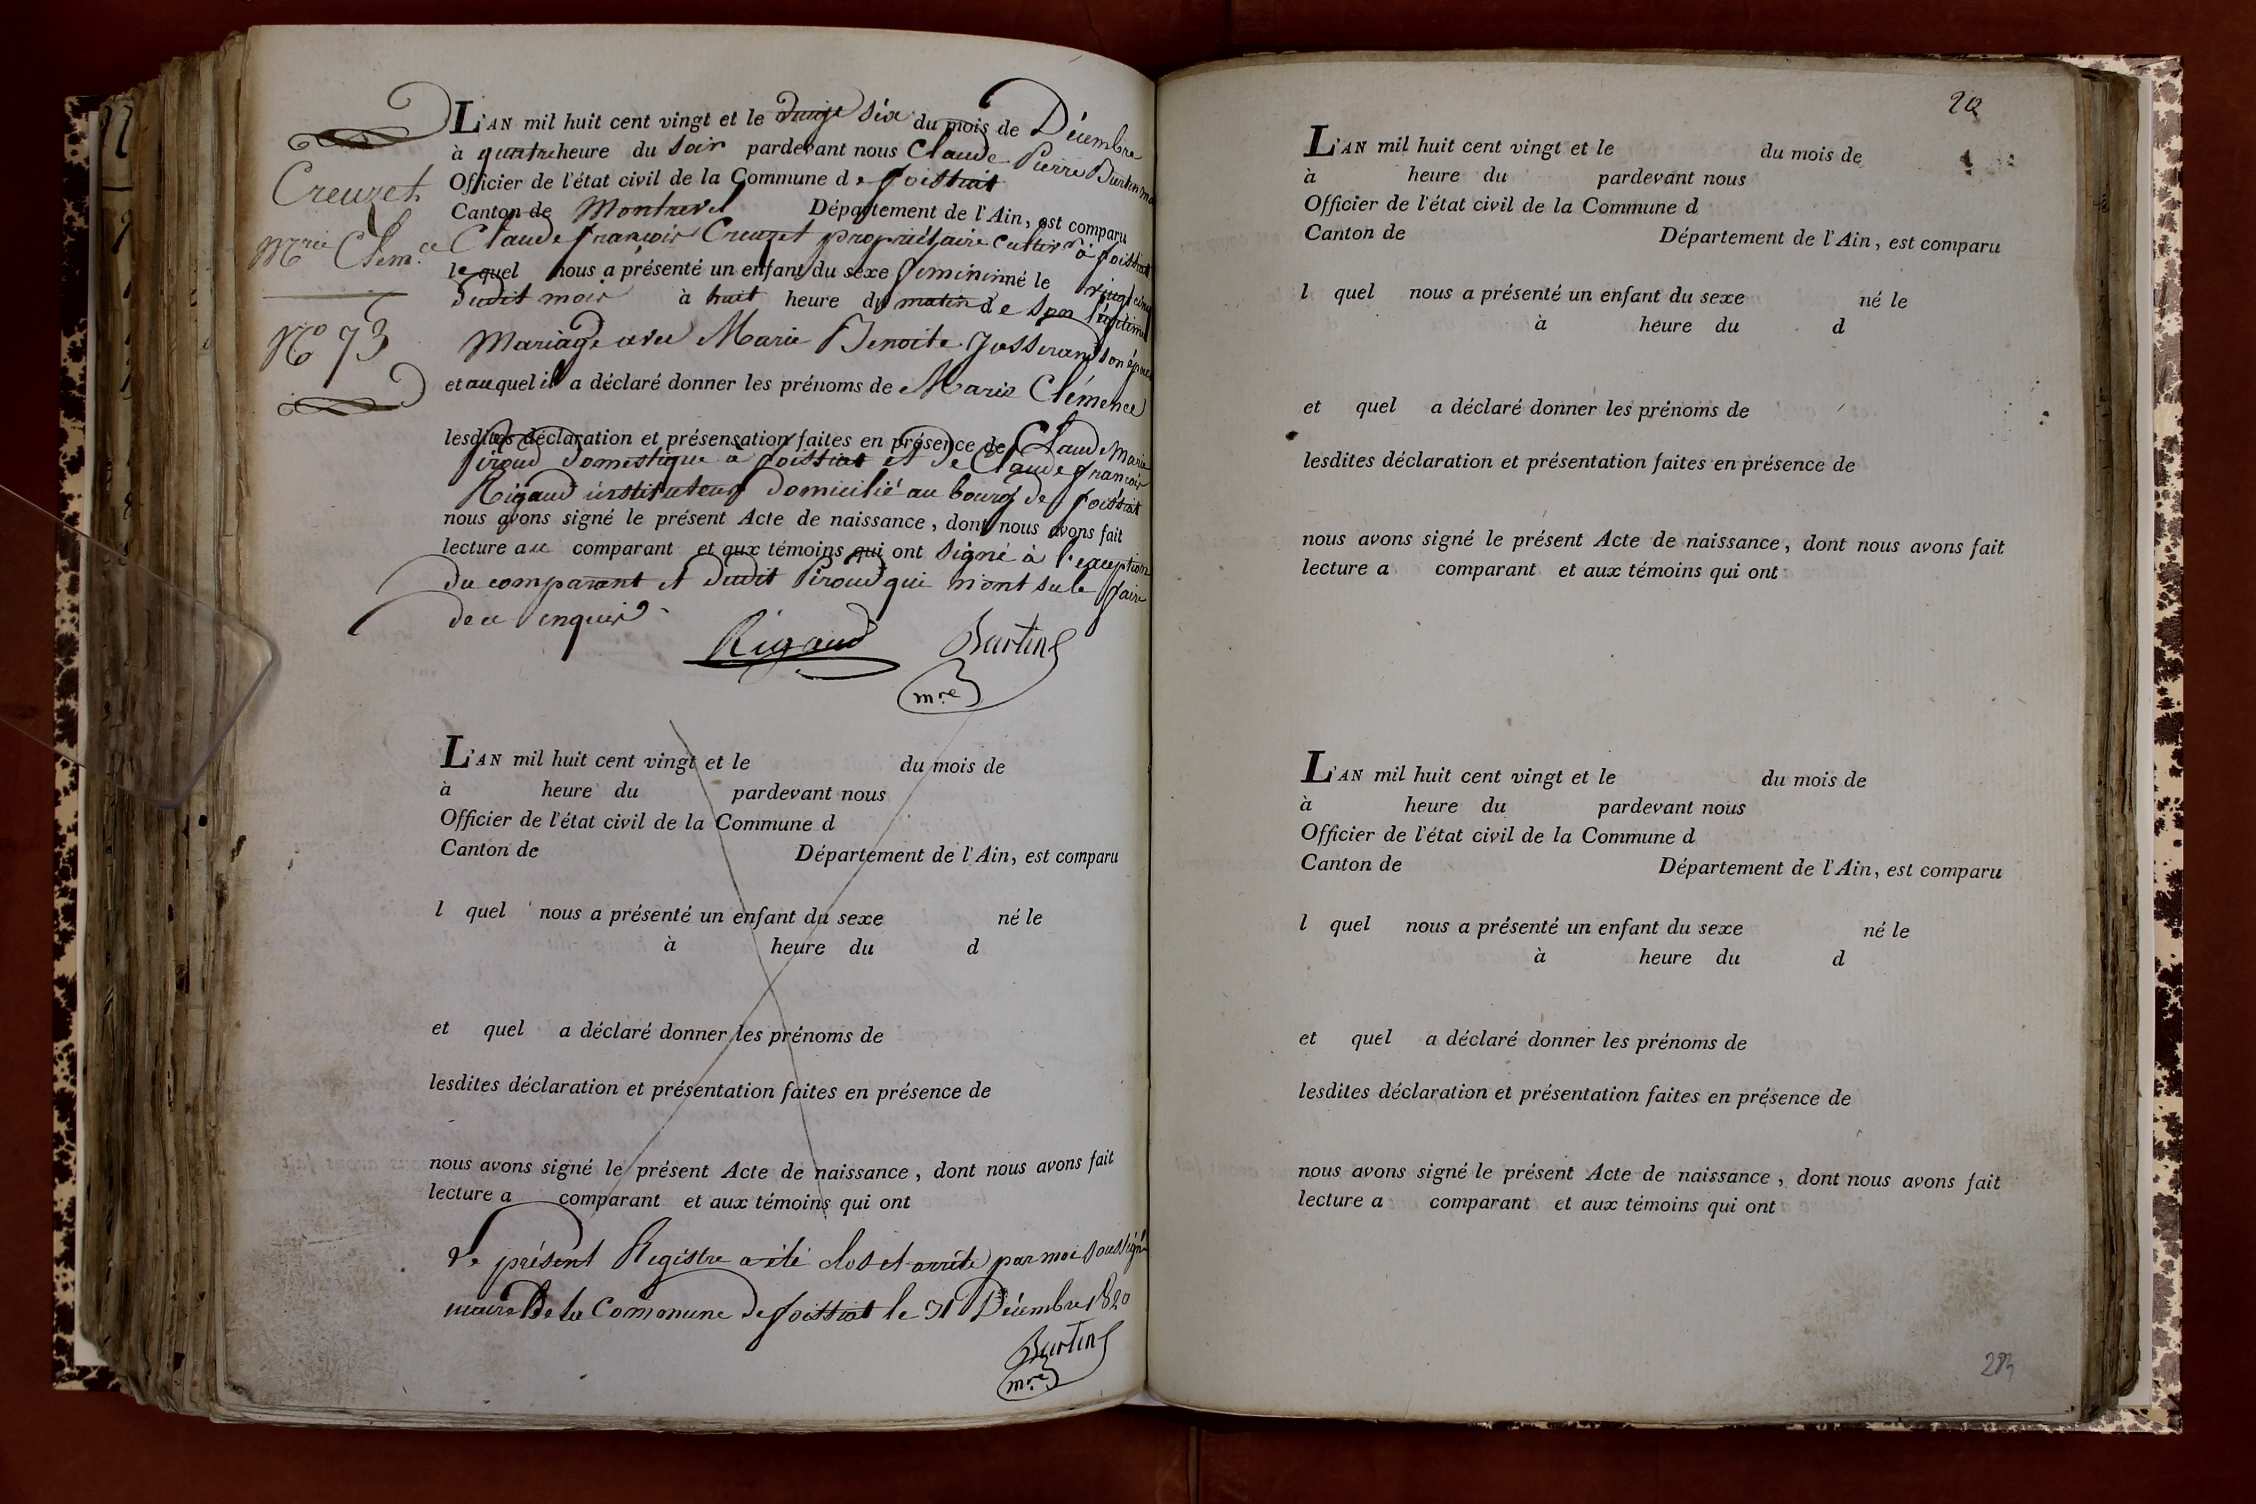 L'AN mil huit cent vingt et le vingt six du mois de Décembre
à quatre heure du soir pardevant nous Claude Pierre Burtin
Officier de l'état civil de la Commune de foissiat
Canton de Montrevel Département de l'Ain, est comparu
Claude françois Creuzet propriétaire cultivr à foissiat
lequel nous a présenté un enfant du sexe feminin né le vingt cinq
dudit mois à huit heure du matin de son légitime
Mariage avec Marie Benoite Josserand son épouse
et auquel il a déclaré donner les prénoms de Marie Clémence
lesdites déclaration et présensation faites en présence de Claude Marie
piroud domestique à foissiat et de Claude françois
Rigaud instituteur domicilié au bourg de foissiat
nous avons signé le présent Acte de naissance, dont nous avons fait
lecture au comparant et aux témoins qui ont signé à l'exception
du comparant et dudit piroud qui n'ont su le faire
de ce enquis
Rigaud Burtin
mre
Creuzet
Mrie Clem.ce
No 73
L'AN mil huit cent vingt et le du mois de
à heure du pardevant nous
Officier de l'état civil de la Commune d
Canton de Département de l'Ain, est comparu
l quel nous a présenté un enfant du sexe né le
à heure du d
et quel a déclaré donner les prénoms de
lesdites déclaration et présentation faites en présence de
nous avons signé le présent Acte de naissance, dont nous avons fait
lecture a comparant et aux témoins qui ont
Le présent Registre a été clos et arrêté par moi soussigné
maire de la Commune de foissiat le 31 Décembre 1820
Burtin
mre
20
L'AN mil huit cent vingt et le du mois de
à heure du pardevant nous
Officier de l'état civil de la Commune d
Canton de Département de l'Ain, est comparu
l quel nous a présenté un enfant du sexe né le
à heure du d
et quel a déclaré donner les prénoms de
lesdites déclaration et présentation faites en présence de
nous avons signé le présent Acte de naissance, dont nous avons fait
lecture a comparant et aux témoins qui ont
L'AN mil huit cent vingt et le du mois de
à heure du pardevant nous
Officier de l'état civil de la Commune d
Canton de Département de l'Ain, est comparu
l quel nous a présenté un enfant du sexe né le
à heure du d
et quel a déclaré donner les prénoms de
lesdites déclaration et présentation faites en présence de
nous avons signé le présent Acte de naissance, dont nous avons fait
lecture a comparant et aux témoins qui ont